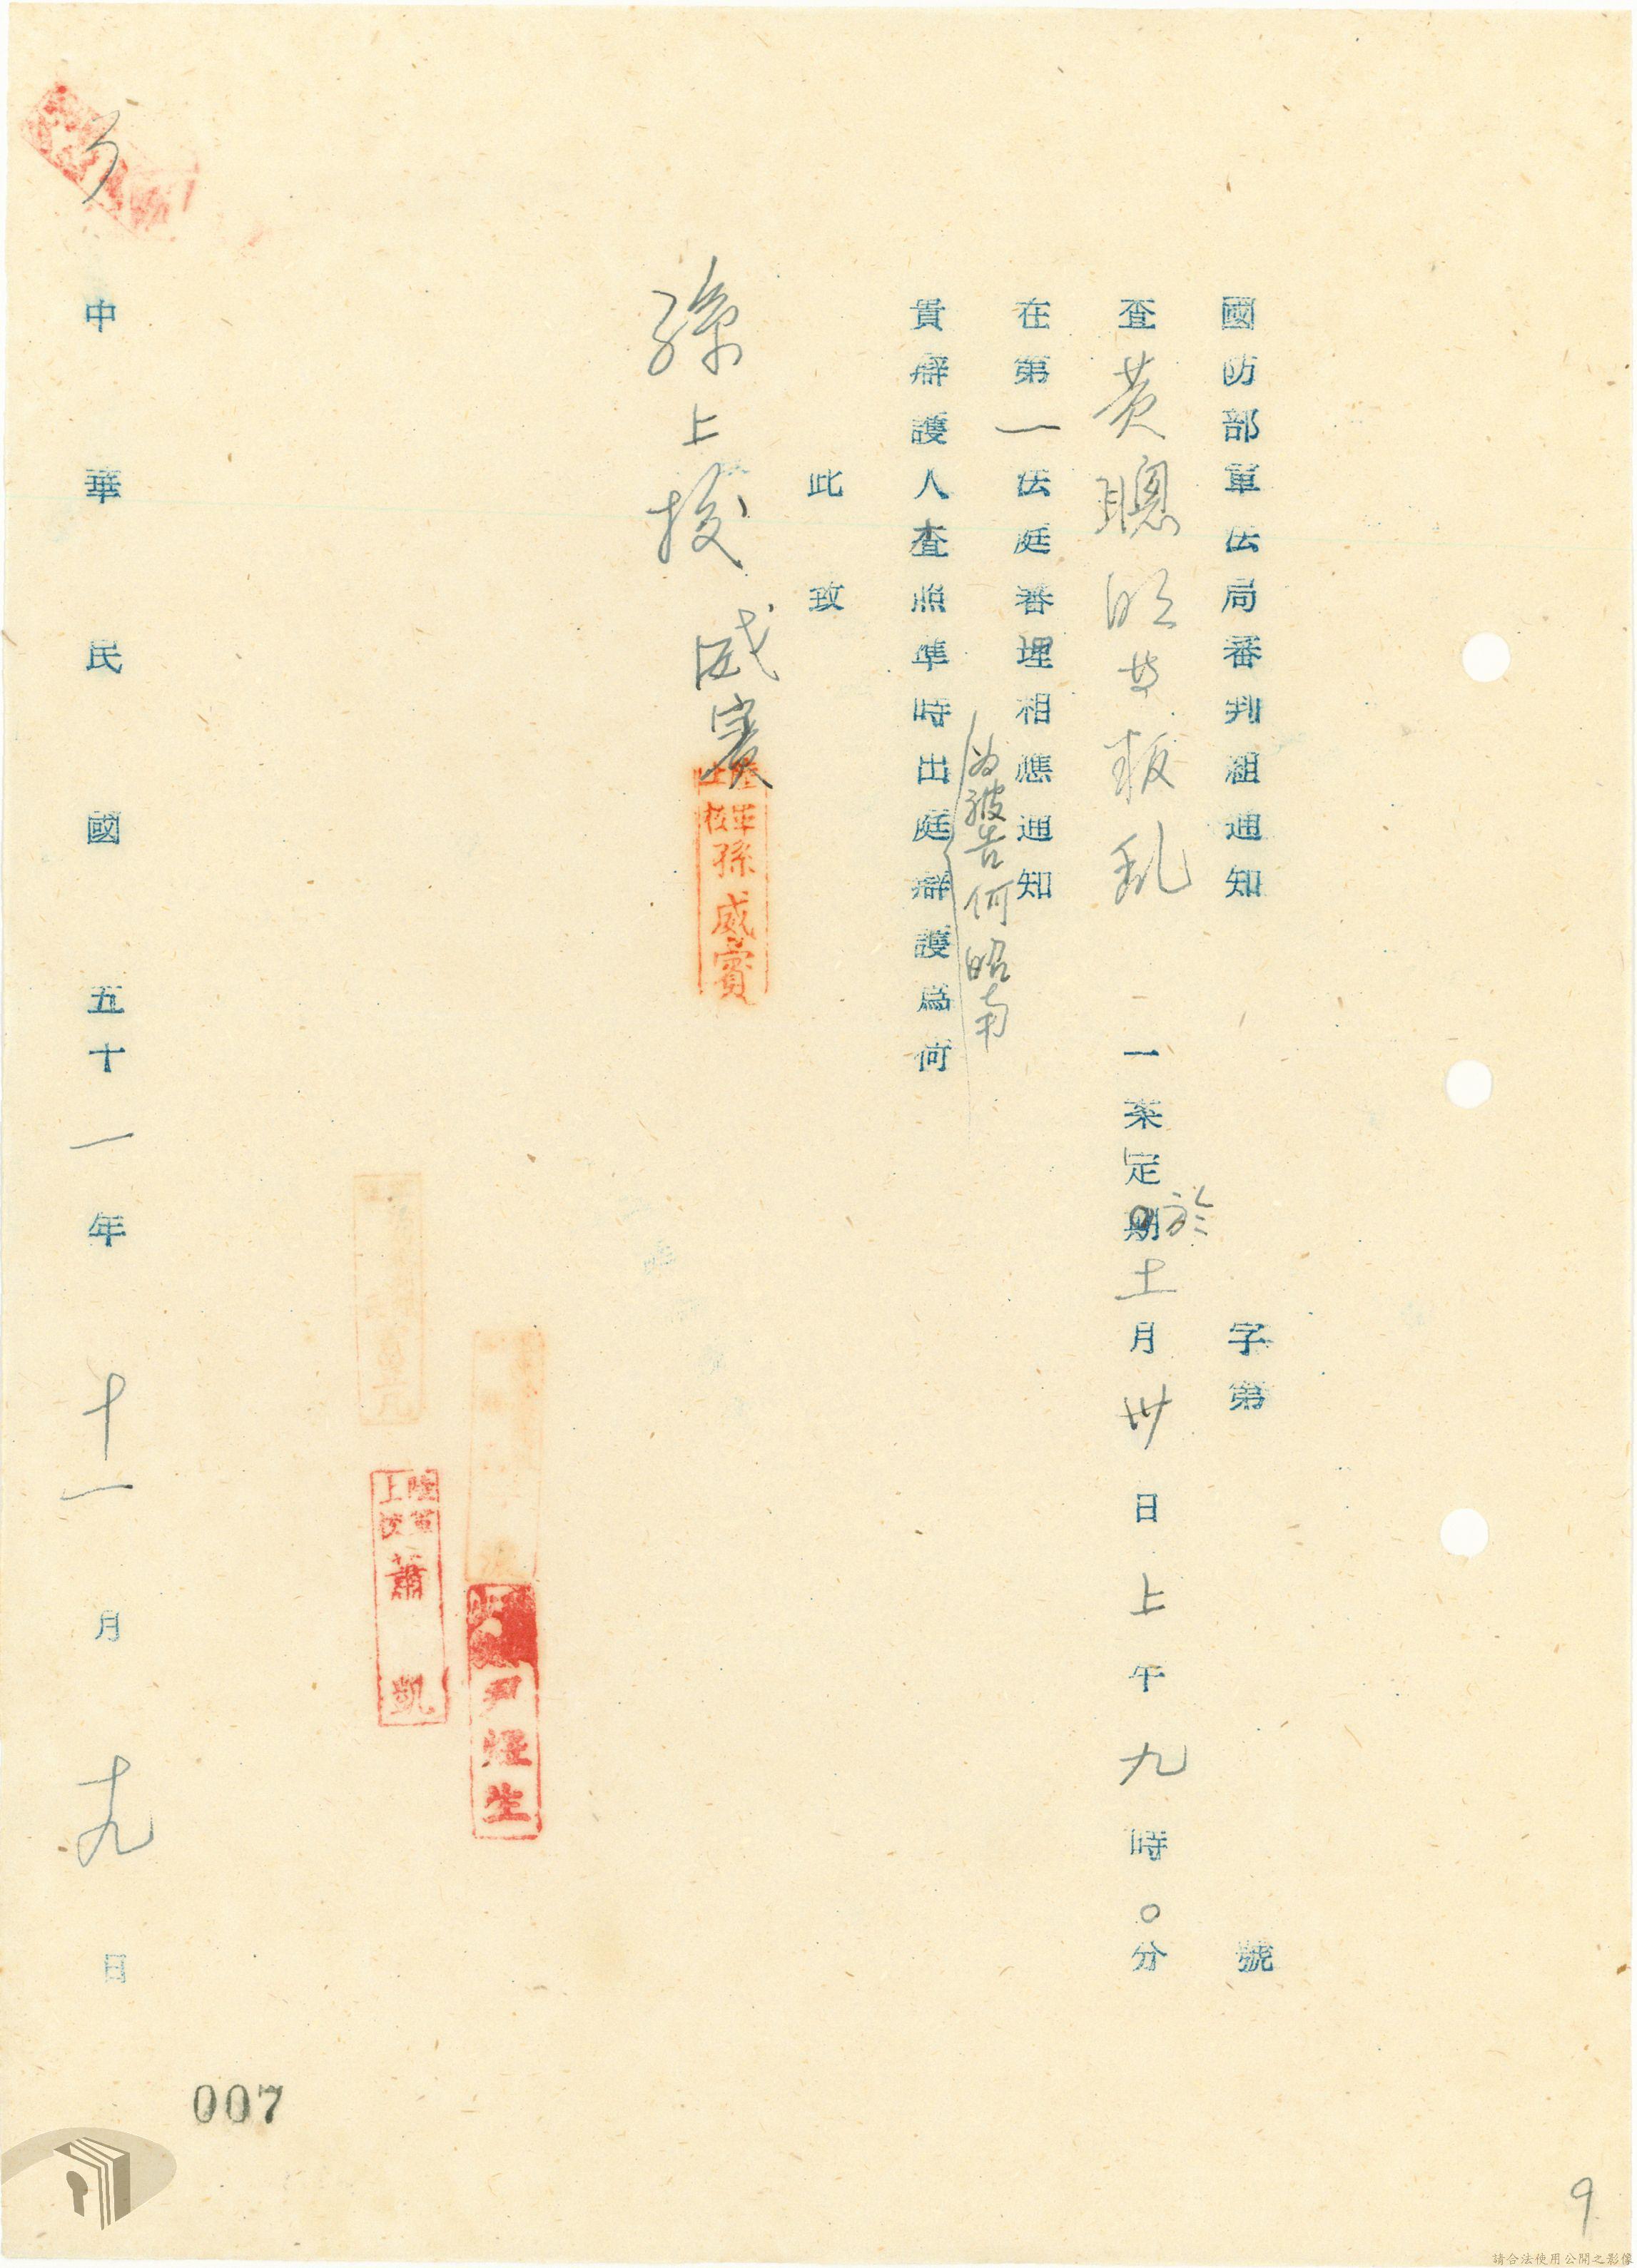 國防部軍法局審判組通知 字第 號
查黃聰明等叛乱 一案定期於十一月卅日上午九時〇分
在第一法庭審理相應通知
為被告何昭南
貴辯護人查照準時出庭辯護為何
此致
孫上校 威賓
陸軍上校 孫威賓
陸軍上校 蕭凱
尹 生
中華民國五十一年十一月十九日
007
9
請合法使用公開之影像